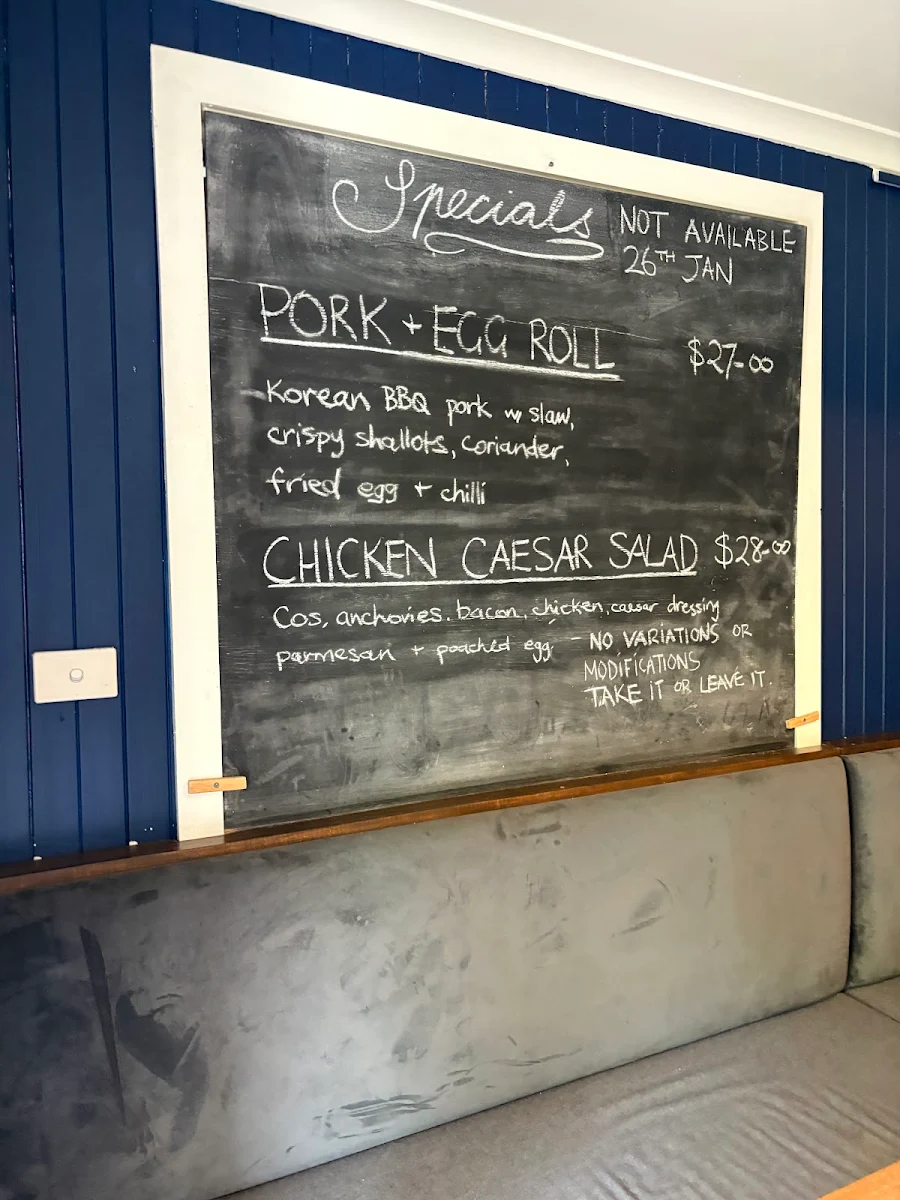 Specials
NOT AVAILABLE
26TH JAN
PORK + EGG ROLL
$27-00
Korean BBQ pork w/ slaw,
crispy shallots, coriander,
fried egg + chilli
CHICKEN CAESAR SALAD $28-00
Cos, anchovies, bacon, chicken, caesar dressing
parmesan + poached egg
- NO VARIATIONS OR
MODIFICATIONS
TAKE IT OR LEAVE IT.